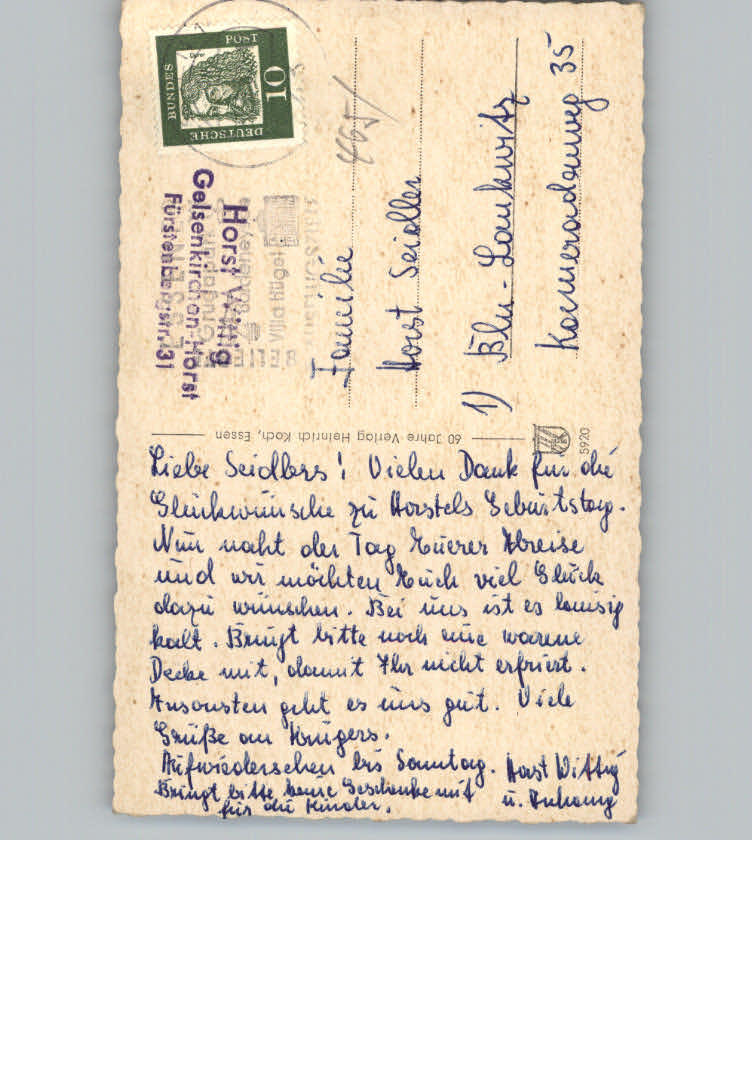 DEUTSCHE
BUNDES
POST
10
465/
Horst Wittig
Gelsenkirchen-Horst
Fürstenbergstr. 31
Villa Hügel
Familie
Horst Seidler
1) Bln-Lankwitz
Kameradenweg 35
60 Jahre Verlag Heinrich Koch, Essen
5920
Liebe Seidlers! Vielen Dank für die
Glückwünsche zu Horstels Geburtstag.
Nun naht der Tag Euerer Abreise
und wir möchten Euch viel Glück
dazu wünschen. Bei uns ist es lausig
kalt. Bringt bitte noch eine warme
Decke mit, damit Ihr nicht erfriert.
Ansonsten geht es uns gut. Viele
Grüße an Krügers.
Aufwiedersehen bis Sonntag. Horst Wittig
u. Anhang
Bringt bitte keine Geschenke mit
für die Kinder.